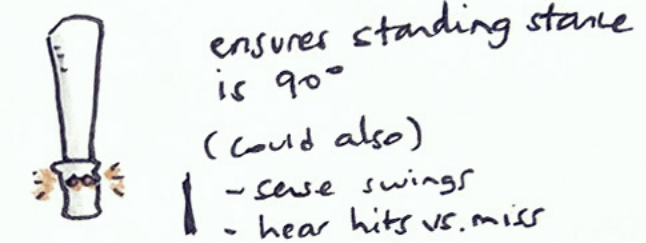 ensures standing stance
is 90°
(could also)
- sense swings
- hear hits vs. miss